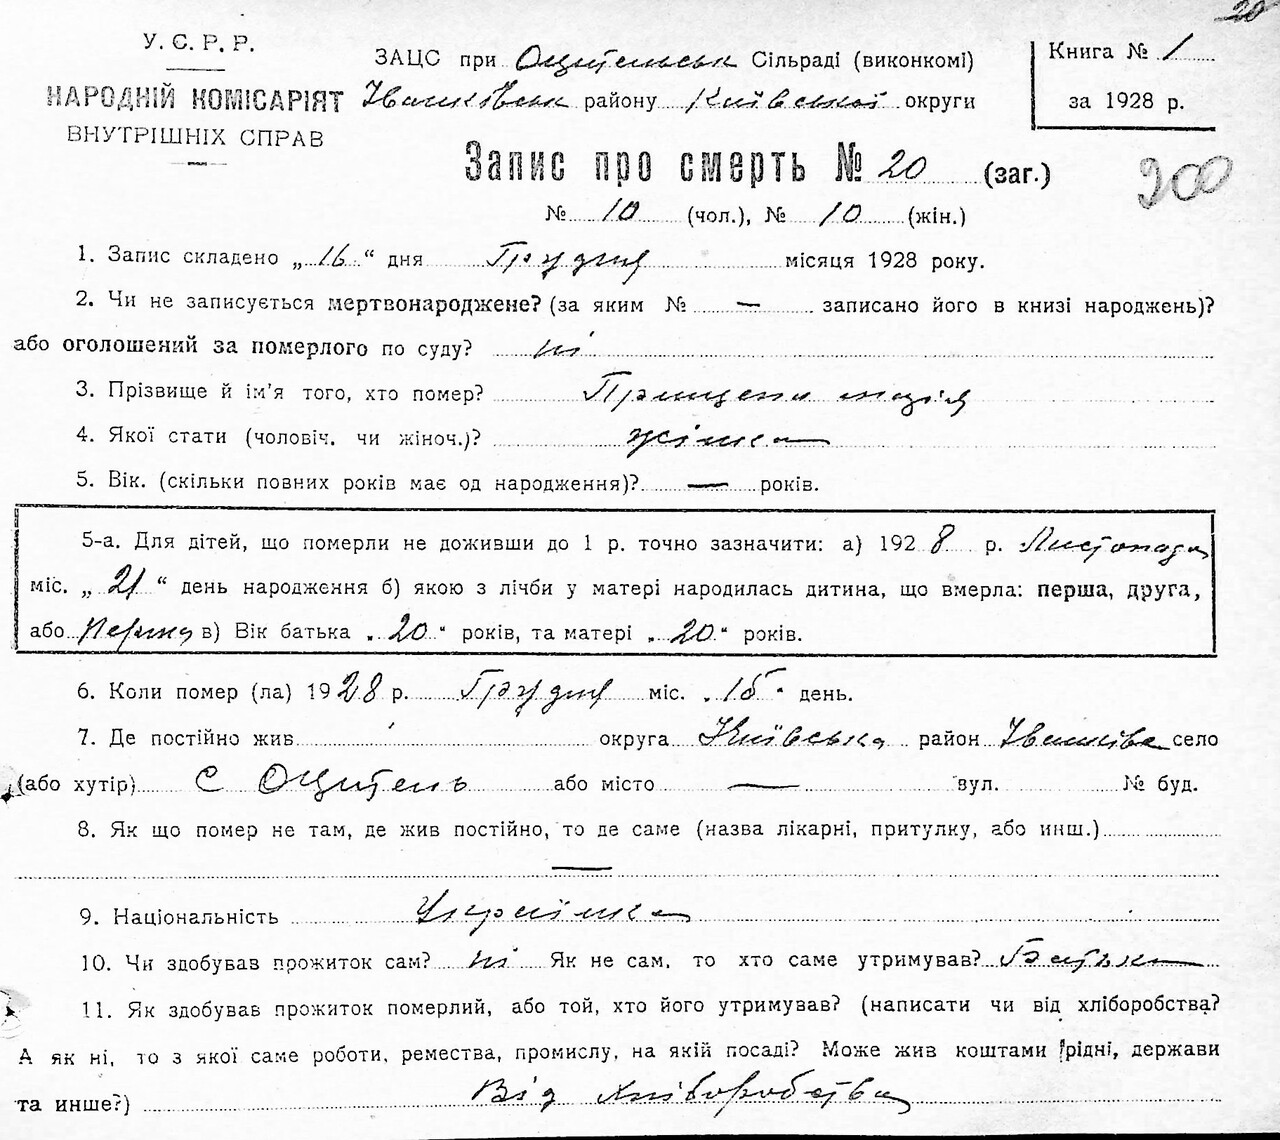 20
У. С. Р. Р.
НАРОДНІЙ КОМІСАРІЯТ
ВНУТРІШНІХ СПРАВ
ЗАЦС при Оцительськ Сільраді (виконкомі)
Іванківськ району Київської округи
Книга № 1
за 1928 р.
Запис про смерть № 20 (заг.)
200
№ 10 (чол.), № 10 (жін.)
1. Запис складено „ 16 “ дня Грудня місяця 1928 року.
2. Чи не записується мертвонароджене? (за яким № — записано його в книзі народжень)?
або оголошений за померлого по суду? ні
3. Прізвище й ім’я того, хто помер?
4. Якої стати (чоловіч. чи жіноч.)? жінка
5. Вік. (скільки повних років має од народження)? — років.
5-а. Для дітей, що померли не доживши до 1 р. точно зазначити: а) 1928 р. Листопада
міс. „ 21 “ день народження б) якою з лічби у матері народилась дитина, що вмерла: перша, друга,
або перша в) Вік батька „ 20 “ років, та матері „ 20 “ років.
6. Коли помер (ла) 1928 р. Грудня міс. „ 15 “ день.
7. Де постійно жив округа Київська район Іванківс село
(або хутір) с Оцитель або місто — вул. № буд.
8. Як що помер не там, де жив постійно, то де саме (назва лікарні, притулку, або инш.)
—
9. Національність Українка
10. Чи здобував прожиток сам? ні Як не сам, то хто саме утримував? Батько
11. Як здобував прожиток померлий, або той, хто його утримував? (написати чи від хліборобства?
А як ні, то з якої саме роботи, ремества, промислу, на якій посаді? Може жив коштами рідні, держави
та инше?) Від хліборобства